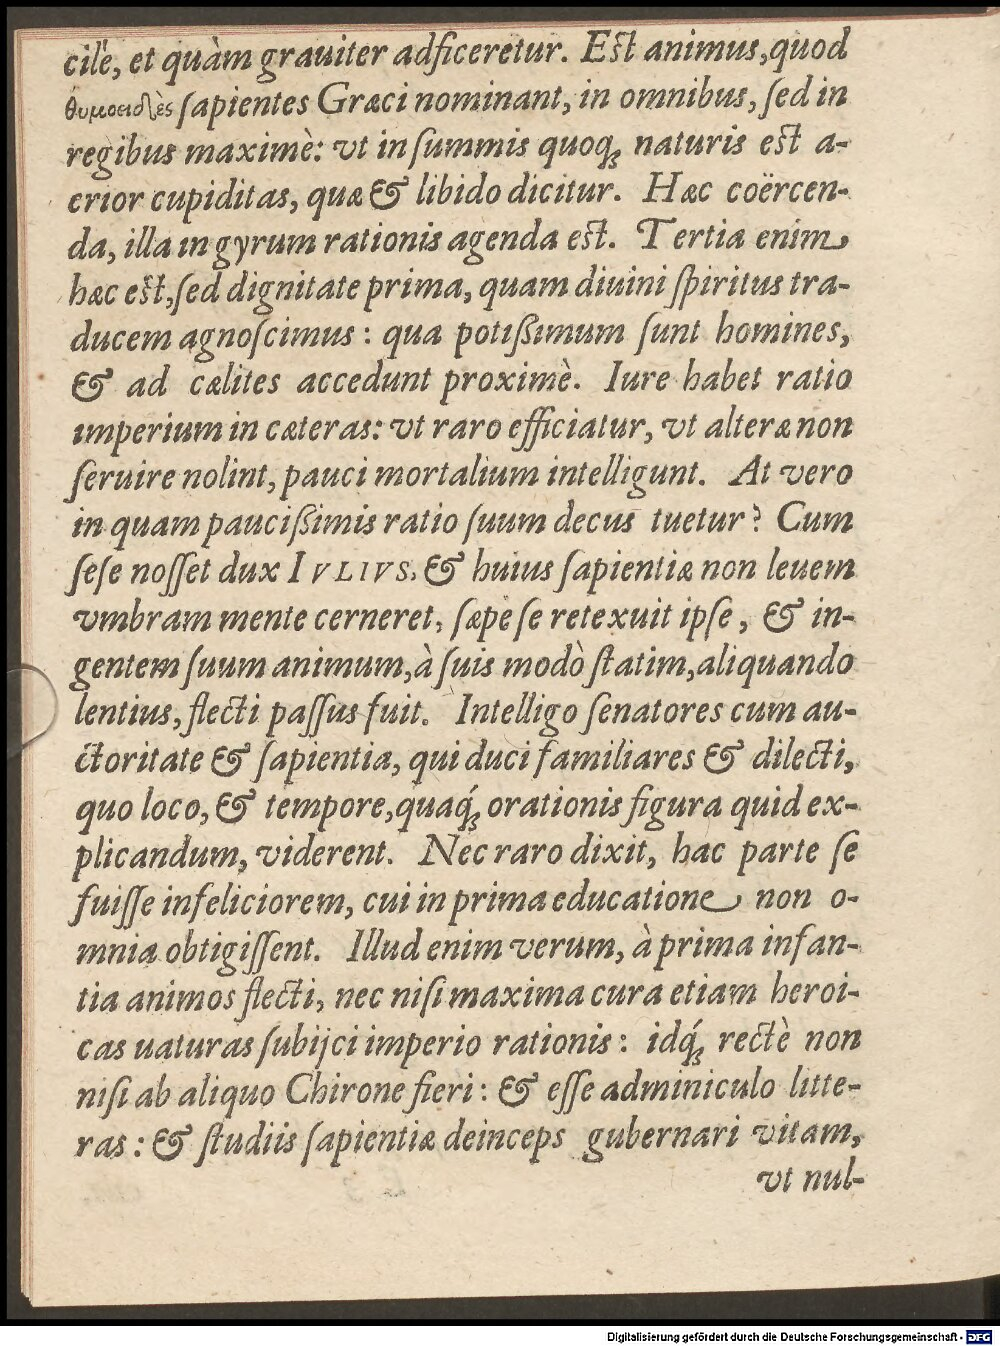 cilè, et quàm grauiter adficeretur. Est animus, quod
θυμοειδὲς ſapientes Græci nominant, in omnibus, ſed in
regibus maximè: vt in ſummis quoqꝫ naturis est a-
crior cupiditas, quæ & libido dicitur. Hæc coërcen-
da, illa in gyrum rationis agenda est. Tertia enim
hæc est, ſed dignitate prima, quam diuini ſpiritus tra-
ducem agnoſcimus: qua potißimum ſunt homines,
& ad cælites accedunt proximè. Iure habet ratio
imperium in cæteras: vt raro efficiatur, vt alteræ non
ſeruire nolint, pauci mortalium intelligunt. At vero
in quam paucißimis ratio ſuum decus tuetur? Cum
ſeſe noſſet dux IVLIVS, & huius ſapientiæ non leuem
vmbram mente cerneret, ſæpe ſe retexuit ipſe, & in-
gentem ſuum animum, à ſuis modò ſtatim, aliquando
lentius, flecti paſſus fuit. Intelligo ſenatores cum au-
ctoritate & ſapientia, qui duci familiares & dilecti,
quo loco, & tempore, quaq́ꝫ orationis figura quid ex-
plicandum, viderent. Nec raro dixit, hac parte ſe
fuiſſe infeliciorem, cui in prima educatione non o-
mnia obtigiſſent. Illud enim verum, à prima infan-
tia animos flecti, nec niſi maxima cura etiam heroi-
cas uaturas ſubijci imperio rationis: idq́ꝫ rectè non
niſi ab aliquo Chirone fieri: & eſſe adminiculo litte-
ras: & ſtudiis ſapientiæ deinceps gubernari vitam,
vt nul-
Digitalisierung gefördert durch die Deutsche Forschungsgemeinschaft - DFG